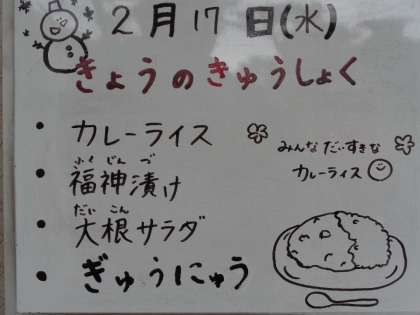 2月17日(水)
きょうのきゅうしょく
・カレーライス
みんなだいすきな
カレーライス
ふくじんづ
・福神漬け
だいこん
・大根サラダ
・ぎゅうにゅう